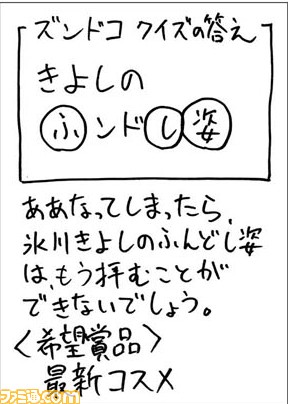 ズンドコ クイズの答え
きよしの
ふンドし姿
ああなってしまったら、
氷川きよしのふんどし姿
は、もう拝むことが
できないでしょう。
〈希望賞品〉
最新コスメ
ファミ通.com